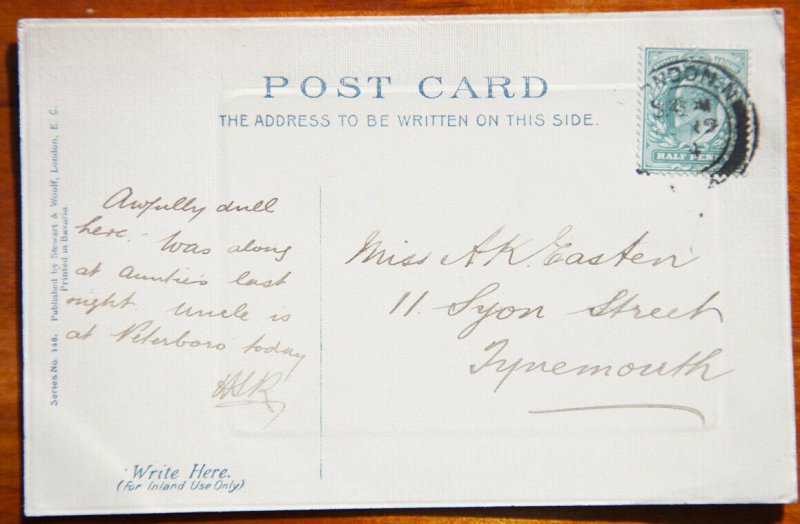 POST CARD
THE ADDRESS TO BE WRITTEN ON THIS SIDE.
HALF PEN
Series No. 146. Published by Stewart & Woolf, London, E. C.
Printed in Bavaria
Awfully dull
here. Was along
at Auntie's last
night Uncle is
at Peterboro today
Miss A.K. Easten
11 Syon Street
Tynemouth
Write Here.
(For Inland Use Only)